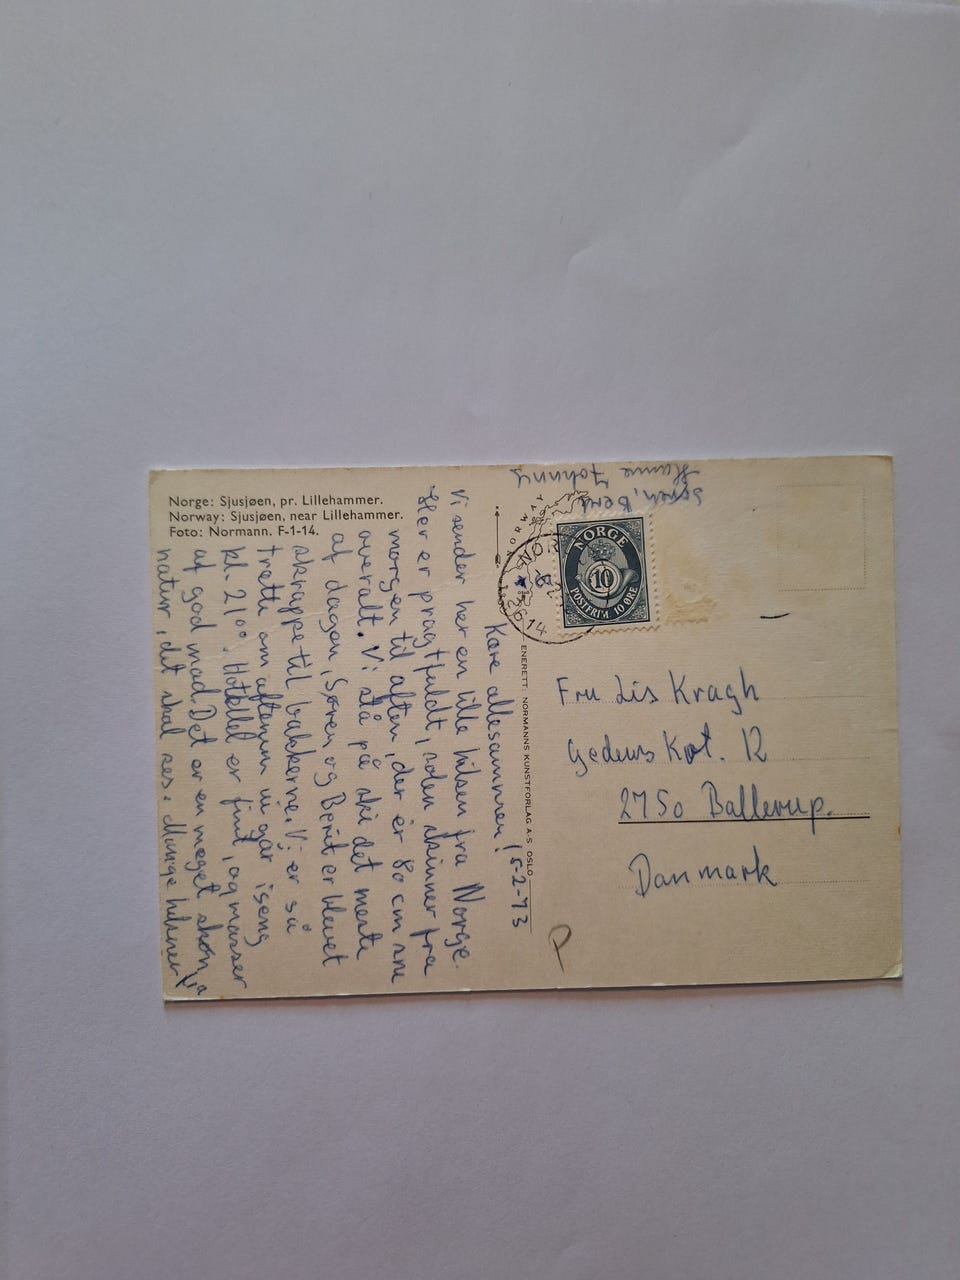 Norge: Sjusjøen, pr. Lillehammer.
Norway: Sjusjøen, near Lillehammer.
Foto: Normann. F-1-14.
15-2-73
Kære allesammen!
Vi sender her en lille hilsen fra Norge.
Her er pragtfuldt, solen skinner fra
morgen til aften, der er 80 cm sne
overalt. Vi stå på ski det meste
af dagen, Søren og Berit er blevet
skrappe til bakkerne. Vi er så
trætte om aftenen vi går iseng
kl. 21⁰⁰. Hotellet er fint, og masser
af god mad. Det er en meget skøn
natur, det skal ses. Mange hilsner fra
Søren, Berit
Hanne Johnny
ENERETT: NORMANNS KUNSTFORLAG A-S OSLO
NORWAY
NOR
2614
NORGE
10
POSTFRIM 10 ØRE
Fru Lis Kragh
Gedeus Kvt. 12
2750 Ballerup.
Danmark
P